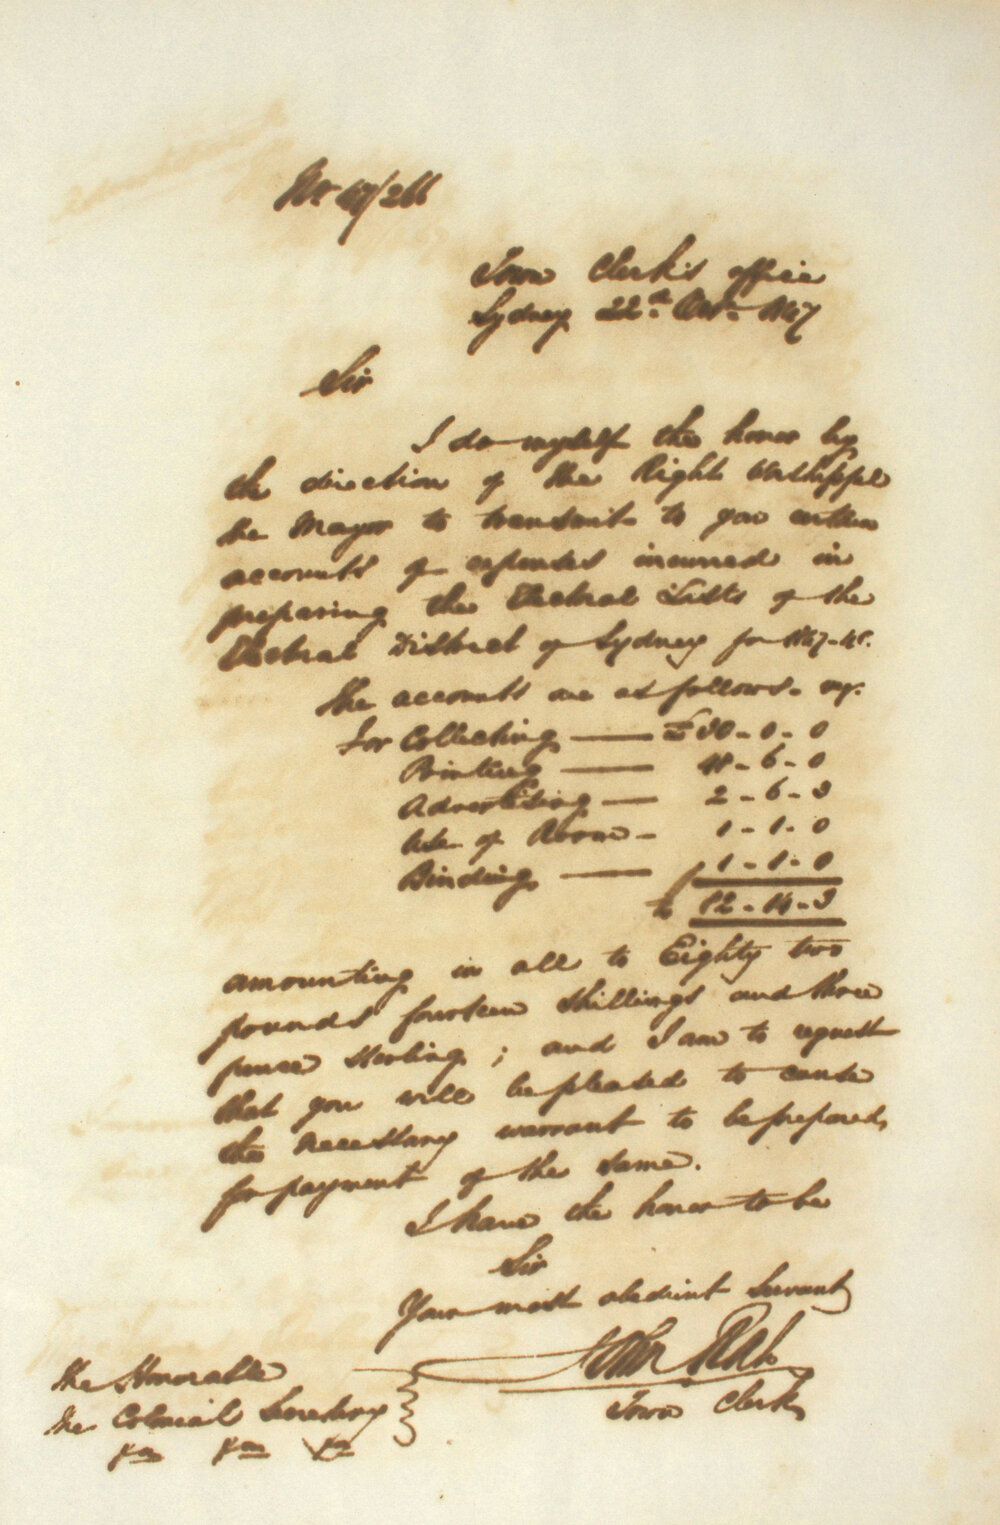 No 47/266
Town Clerk's office
Sydney 22nd 1847
Sir
I do myself the honor by
the direction of the Right Worshipful
the Mayor to transmit to you certain
accounts of expenses incurred in
preparing the Electoral Lists of the
Electoral District of Sydney for 1847-48.
The accounts are as follows. viz.
For Collecting — £30-0-0
Printing — 48-6-0
Advertising — 2-6-3
Use of Room — 1-1-0
Binding — 1-1-0
82-14-3
amounting in all to Eighty two
pounds fourteen shillings and three
pence sterling; and I am to request
that you will be pleased to cause
the necessary warrant to be prepared,
for payment of the same.
I have the honor to be
Sir
Your most obedient Servant
John Rae
Town Clerk
The Honorable
the Colonial Secretary